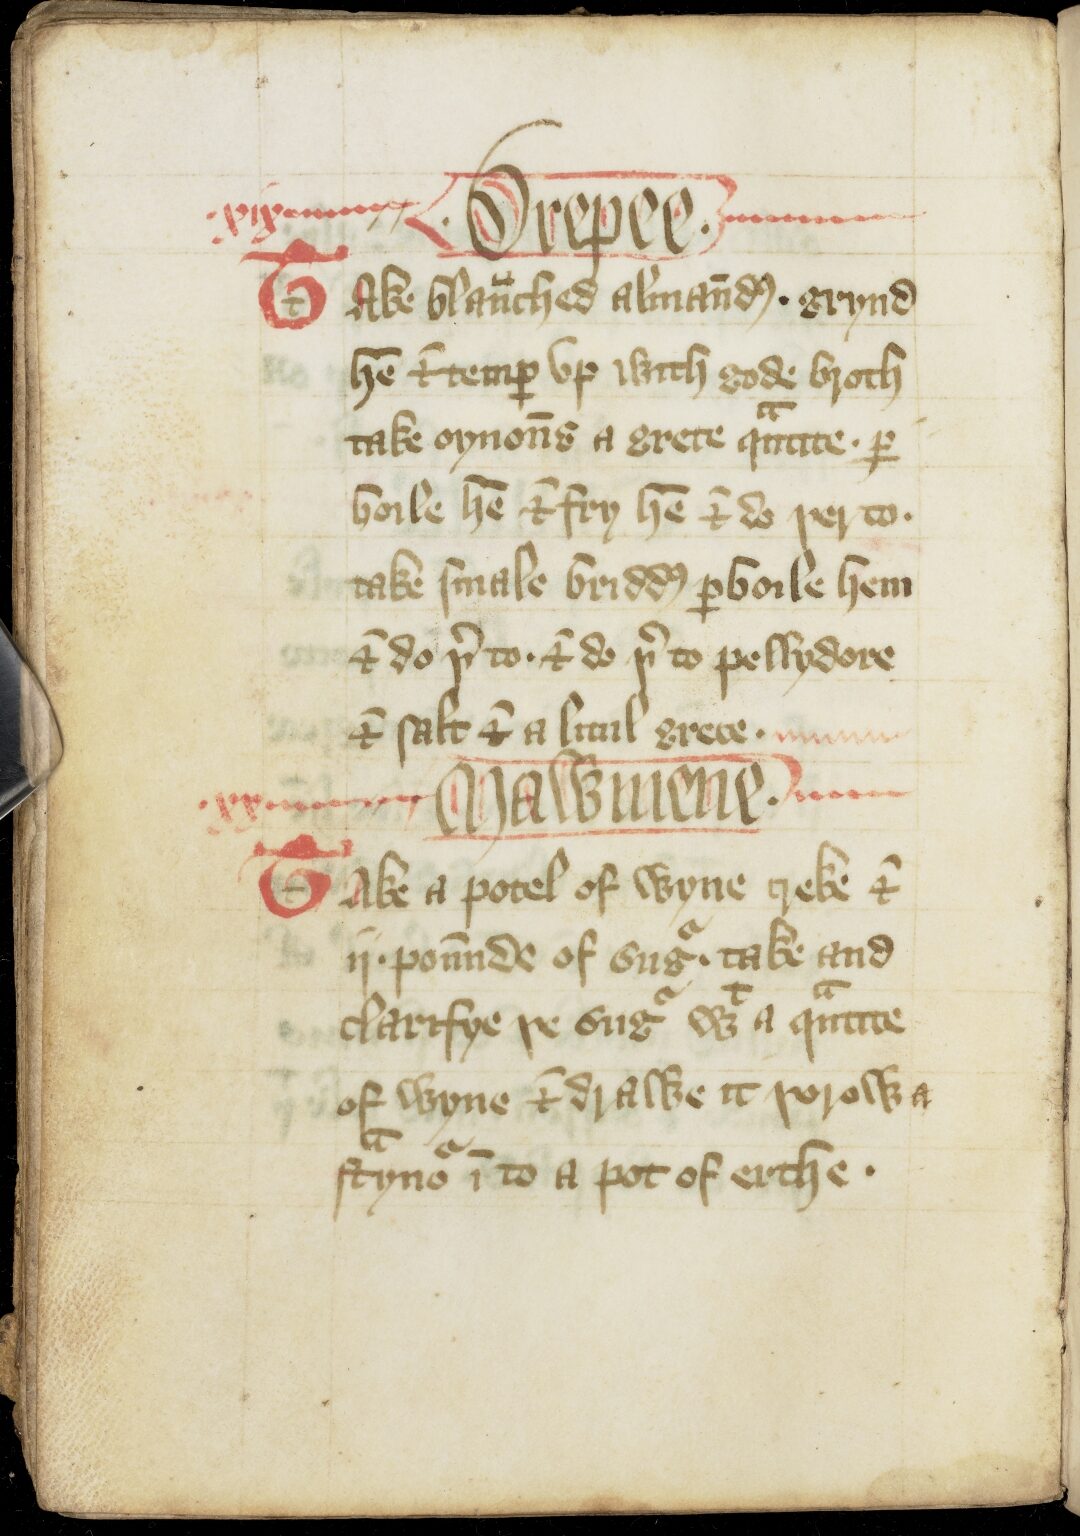 .xix. Drepee.
Take blaūched almān̄dꝭ. grynd
hē ⁊ temꝑ vp with gode broth
take oynoūs a grete qᵃntite. ꝑ
boile hē ⁊ fry hē ⁊ do þer to.
take smale briddꝭ ꝑboile hem
⁊ do þ̉ to. ⁊ do þ̉ to pellydore
⁊ salt ⁊ a litul grece.
.xx. Mawmene.
Take a potel of wyne greke ⁊
ij. poūnde of sugᷓ. take and
clarifye þe sugᷓ wᵗ a qᵃntite
of wyne ⁊ drawe it þorow a
stᵃynoᷓ ī to a pot of erthe.